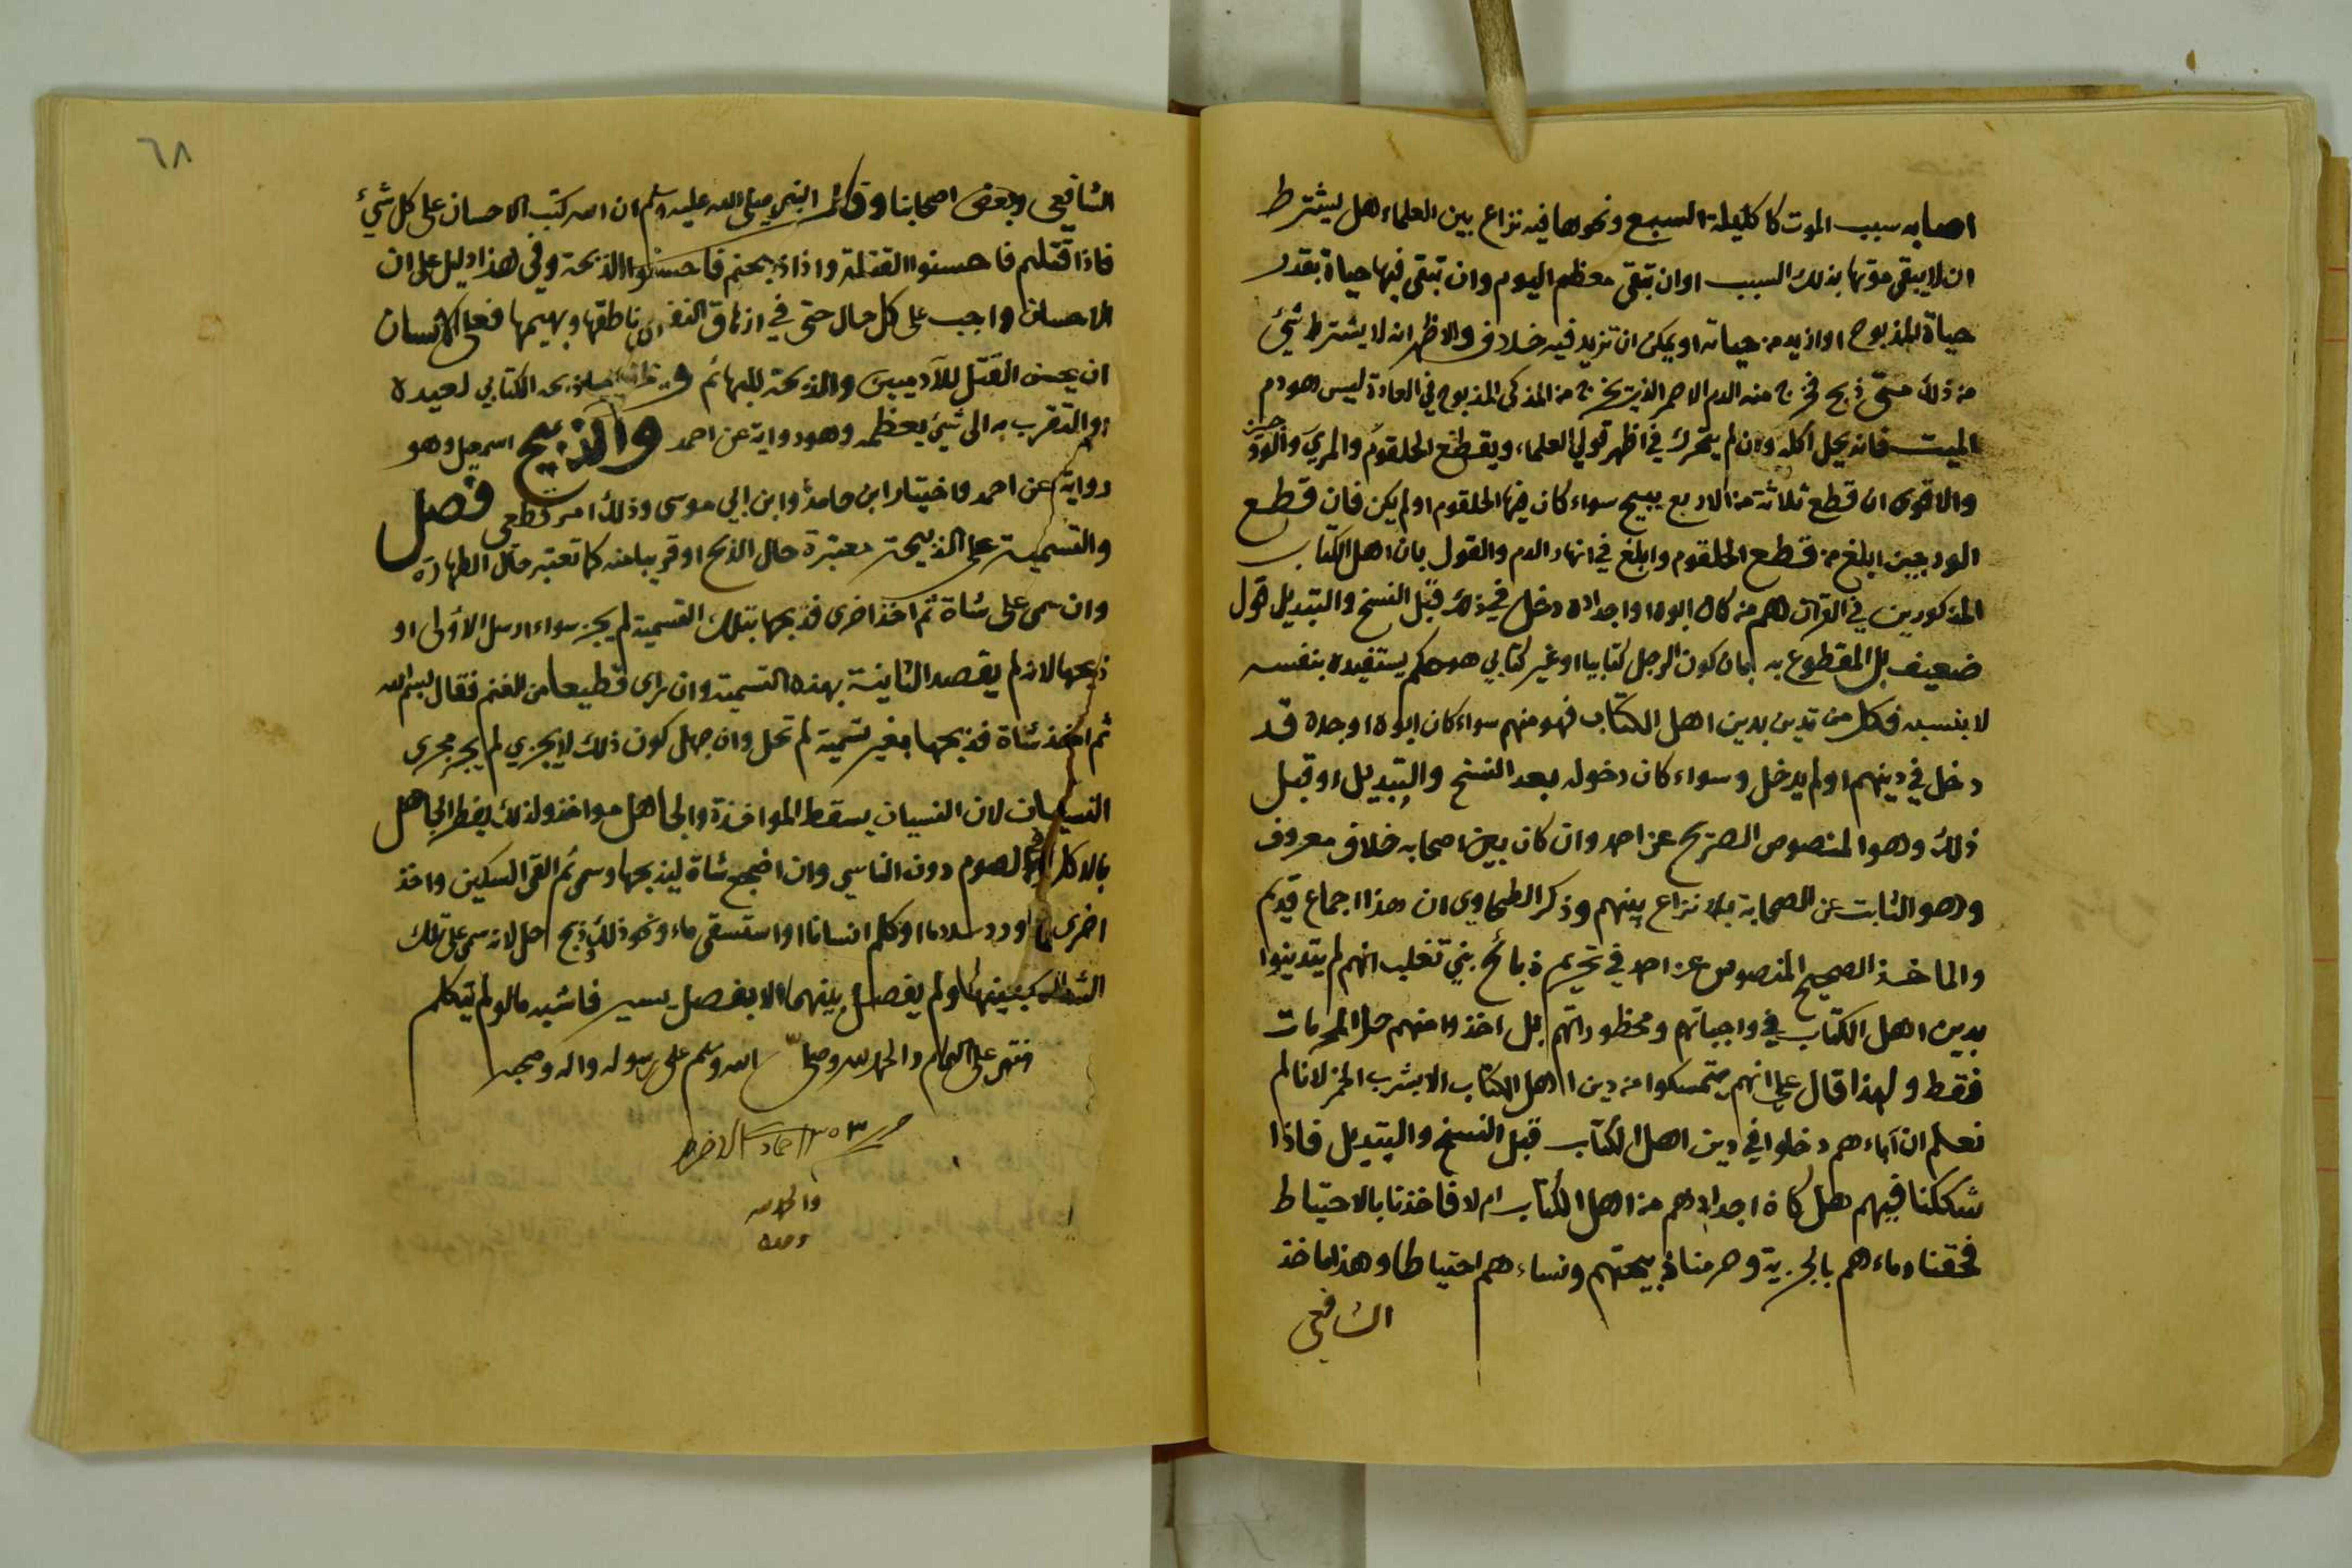 اصابه سبب الموت كاكليلة السبع ونحوها فيه نزاع بين العلماء هل يشترط
ان لا يبقى موتها بذلك السبب او ان تبقى معظم اليوم وان تبقى فيها حياة بقدر
حياة المذبوح او ازيد من حياته او يمكن ان تزيد فيه خلاف والاظهر انه لا يشترط شيئ
من ذلك متى ذبح فخرج منه الدم الاحمر الذي يخرج من المذكى المذبوح في العادة ليس هو دم
الميت فانه يحل اكله وان لم يتحرك في اظهر قولي العلماء ويقطع الحلقوم والمري والودجين
والاقوى ان قطع ثلاثة من الاربع يبيح سواء كان فيها الحلقوم او لم يكن فان قطع
الودجين ابلغ من قطع الحلقوم وابلغ في انهار الدم والقول بان اهل الكتاب
المذكورين في القرآن هم من كان ابوه او اجداده دخل في ذلك قبل النسخ والتبديل قول
ضعيف بل المقطوع به بان كون الرجل كتابيا او غير كتابي هو حكم يستفيده بنفسه
لا بنسبه فكل من تدين بدين اهل الكتاب فهو منهم سواء كان ابوه او جده قد
دخل في دينهم او لم يدخل وسواء كان دخوله بعد النسخ والتبديل او قبل
ذلك وهو المنصوص الصريح عن احمد وان كان بين اصحابه خلاف معروف
وهو الثابت عن الصحابة بلا نزاع بينهم وذكر الطحاوي ان هذا اجماع قديم
والماخذ الصحيح المنصوص عن احمد في تحريم ذبائح بني تغلب انهم لم يتدينوا
بدين اهل الكتاب في واجباتهم ومحظوراتهم بل اخذوا منهم حل المحرمات
فقط ولهذا قال علي انهم يتمسكوا من دين اهل الكتاب الا بشرب الخمر لانا لم
نعلم ان آباءهم دخلوا في دين اهل الكتاب قبل النسخ والتبديل فاذا
شككنا فيهم هل كان اجدادهم من اهل الكتاب ام لا فاخذنا بالاحتياط
فحقنا دماءهم بالجزية وحرمنا ذبيحتهم ونساءهم احتياطا وهذا ماخذ
الشافعي
٦٨
الشافعي وبعض اصحابنا وقال النبي صلى الله عليه وسلم ان الله كتب الاحسان على كل شيئ
فاذا قتلتم فاحسنوا القتلة واذا ذبحتم فاحسنوا الذبحة وفي هذا دليل على ان
الاحسان واجب على كل حال حتى في ازهاق النفس ناطقها وبهيمها فعلى الانسان
ان يحسن القتل للآدميين والذبحة للبهائم و ما ذبحه الكتابي لعيده
او التقرب به الى شيئ يعظمه وهو رواية عن احمد والذبيح اسمعيل وهو
رواية عن احمد واختيار ابن حامد وابن ابي موسى وذلك امر قطعي فصل
والتسمية على الذبيحة معتبرة حال الذبح او قريبا منه كما تعتبر حال الطهارة
وان سمى على شاة ثم اخذ اخرى فذبحها بتلك التسمية لم يجز سواء ارسل الاولى او
ذبحها لانه لم يقصد الثانية بهذه التسمية وان رأى قطيعا من الغنم فقال بسم الله
ثم اخذ شاة فذبحها بغير تسمية لم تحل وان جهل كون ذلك لا يجزي لم يجر مجرى
النسيان لان النسيان يسقط المواخذة والجاهل مواخذ ولذلك يفطر الجاهل
بالاكل في الصوم دون الناسي وان اضجع شاة ليذبحها وسمى ثم القى السكين واخذ
اخرى او رد سلاما او كلم انسانا او استسقى ماء ونحو ذلك وذبح حل لانه سمى على تلك
الشاة بعينها ولم يفصل بينهما الا بفصل يسير فاشبه ما لو لم يتكلم
على التمام والحمد لله وصلى الله وسلم على رسوله واله وصحبه
والحمد لله
وحده